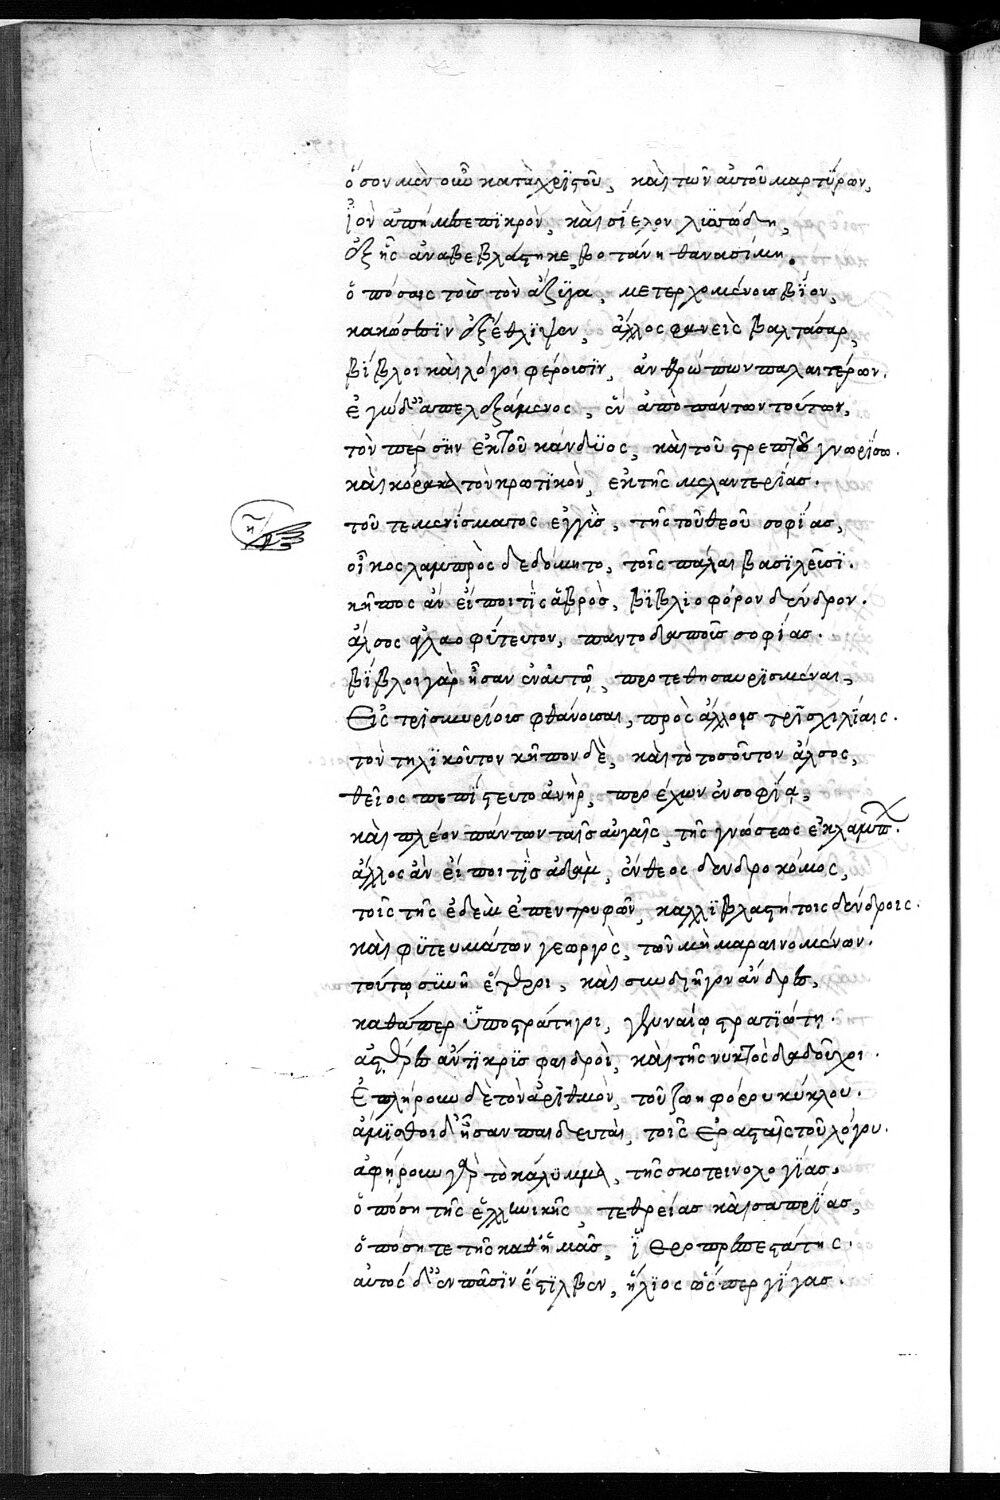 ὅσον μὲν οὖν κατὰ χριστοῦ, καὶ τῶν αὐτοῦ μαρτύρων,
ἰὸν ἀπήμεσε πικρὸν, καὶ σίελον λυσσώδη,
ἐξ ἧς ἀναβεβλάστηκε, βοτάνη θανασίμη.
ὁπόσαις τοῖς τὸν ἄζυγα, μετερχομένοις βίον,
κακώσεσιν ἐξέθλιψεν, ἄλλος φανεὶς βαλτάσαρ,
βίβλοι καὶ λόγοι φέρουσιν, ἀνθρώπων παλαιτέρων.
ἐγὼ δ' ἀπολεξάμενος, ἓν ἀπὸ πάντων τούτων,
τὸν πέρσην ἐκ τοῦ κάνδυος, καὶ τοῦ στρεπτοῦ γνωρίσω.
καὶ κόρακα τὸν κρωτικὸν, ἐκ τῆς μελαντερίας.
τοῦ τεμενίσματος ἐγγὺς, τῆς τοῦ θεοῦ σοφίας,
οἶκος λαμπρὸς δεδόμητο, τοῖς πάλαι βασιλεῦσι.
κῆπος ἂν εἴποι τὶς ἁβρὸς, βιβλιοφόρον δένδρον.
ἄλσος ἀγλαοφύτευτον, παντοδαποῦς σοφίας.
βίβλοι γὰρ ἦσαν ἐν αὐτῷ, προτεθησαυρισμέναι,
Εἰς τρισμυρίους φθάνουσαι, πρὸς ἄλλαις τρισχιλίαις.
τὸν τηλικοῦτον κῆπον δὲ, καὶ τὸ τοσοῦτον ἄλσος,
θεῖος πεπίστευτο ἀνὴρ, προέχων ἐν σοφίᾳ,
καὶ πλέον πάντων ταῖς αὐγαῖς, τῆς γνώσεως ἐκλάμπων.
ἄλλος ἂν εἴποι τὶς ἀδὰμ, ἔνθεος δενδροκόμος,
τοῖς τῆς ἐδὲμ ἐπεντρυφῶν, καλλιβλαστήτοις δένδροις.
καὶ φυτευμάτων γεωργὸς, τῶν μὴ μαραινομένων.
τούτῳ συνῆσαν ἕτεροι, καὶ συνδιῆγον ἄνδρες,
καθάπερ ὑποστράτηγοι, γενναίῳ στρατιώτῃ.
ἀστέρες ἄντικρυς φαιδροὶ, καὶ τῆς νυκτὸς δᾳδοῦχοι.
Ἐπλήρουν δὲ τὸν ἀριθμὸν, τοῦ ζωηφόρου κύκλου.
ἄμισθοι δ' ἦσαν παιδευταὶ, τοῖς ἐρασταῖς τοῦ λόγου.
ἀφῄρουν γὰρ τὸ κάλυμμα, τῆς σκοτεινολογίας.
ὁπόση τῆς ἑλληνικῆς, τεθρείας καὶ σαπρίας,
ὁπόση τε τῆς καθ' ἡμᾶς, ἱεροπρεπεστάτης.
αὐτὸς δ' ἐν πᾶσιν ἔστιλβεν, ἥλιος ὥσπερ γίγας.